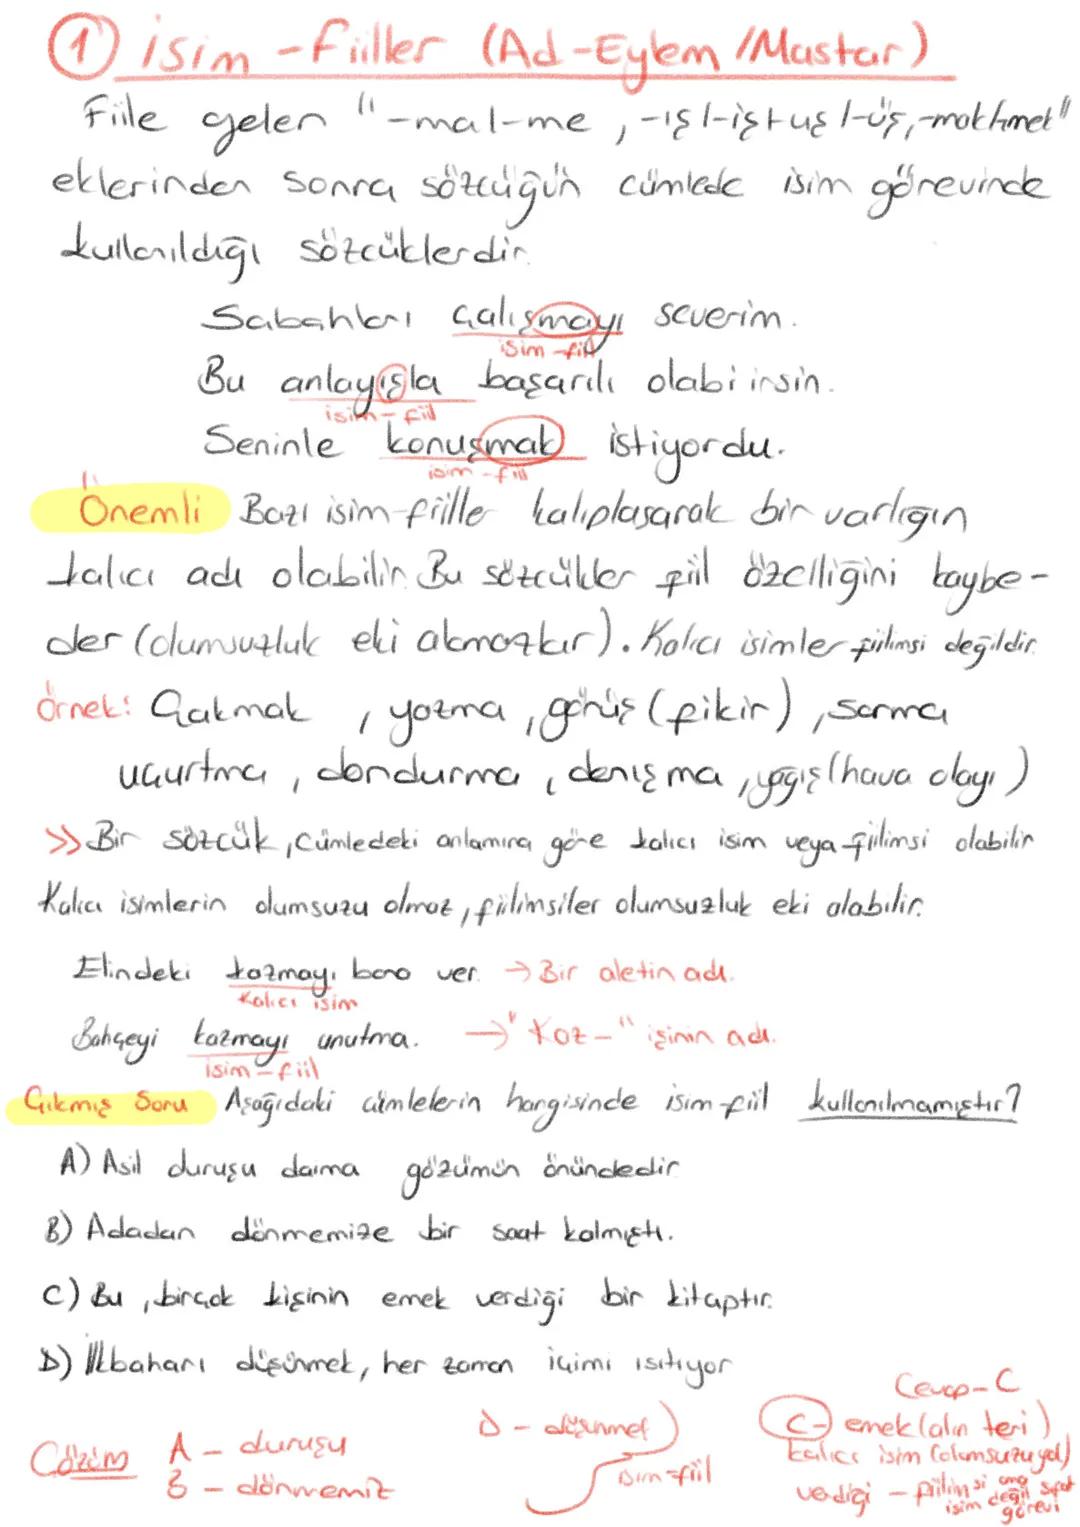 1 isim-fiiller (Ad-Eylem/Mastar)
Fiile gelen "-ma/-me, -ış/-iş/-uş/-üş, -mak/-mek"
eklerinden sonra sözcüğün cümlede isim görevinde
kullanıldığı sözcüklerdir.
Sabahları çalışmayı severim.
isim-fiil
Bu anlayışla başarılı olabilirsin.
isim-fiil
Seninle konuşmak istiyordu.
isim-fiil
Önemli Bazı isim-fiiller kalıplaşarak bir varlığın
kalıcı adı olabilir. Bu sözcükler fiil özelliğini kaybe-
der (olumsuzluk eki almazlar). Kalıcı isimler fiilimsi değildir.
Örnek: Çakmak, yazma, görüş (fikir), sarma
uçurtma, dondurma, danışma, yağış (hava olayı)
>> Bir sözcük, cümledeki anlamına göre kalıcı isim veya fiilimsi olabilir
Kalıcı isimlerin olumsuzu olmaz, fiilimsiler olumsuzluk eki alabilir.
Elindeki kazmayı bana ver. → Bir aletin adı.
Kalıcı isim
Bahçeyi kazmayı unutma. → "Kaz-" işinin adı.
isim-fiil
Çıkmış Soru Aşağıdaki cümlelerin hangisinde isim-fiil kullanılmamıştır?
A) Asil duruşu daima gözümün önündedir.
B) Adadan dönmemize bir saat kalmıştı.
C) Bu, birçok kişinin emek verdiği bir kitaptır.
D) İlkbaharı düşünmek, her zaman içimi ısıtıyor
Cevap-C
Çözüm A - duruşu
B - dönmemiz
D - düşünmek)
isim-fiil
C-) emek (alın teri)
kalıcı isim (olumsuzu yok)
verdiği - fiilimsi ama
isim değil sıfat
görevi